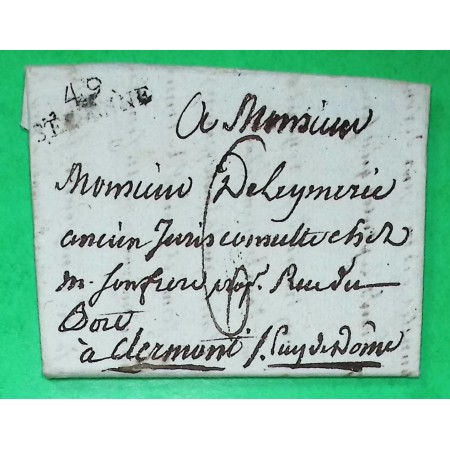 49
ST ETIENNE
A Monsieur
Monsieur Deleymerie
ancien Jurisconsulte chez
m. son frere prof. Rue du
Port
à Clermont / . Puy de Dôme
6